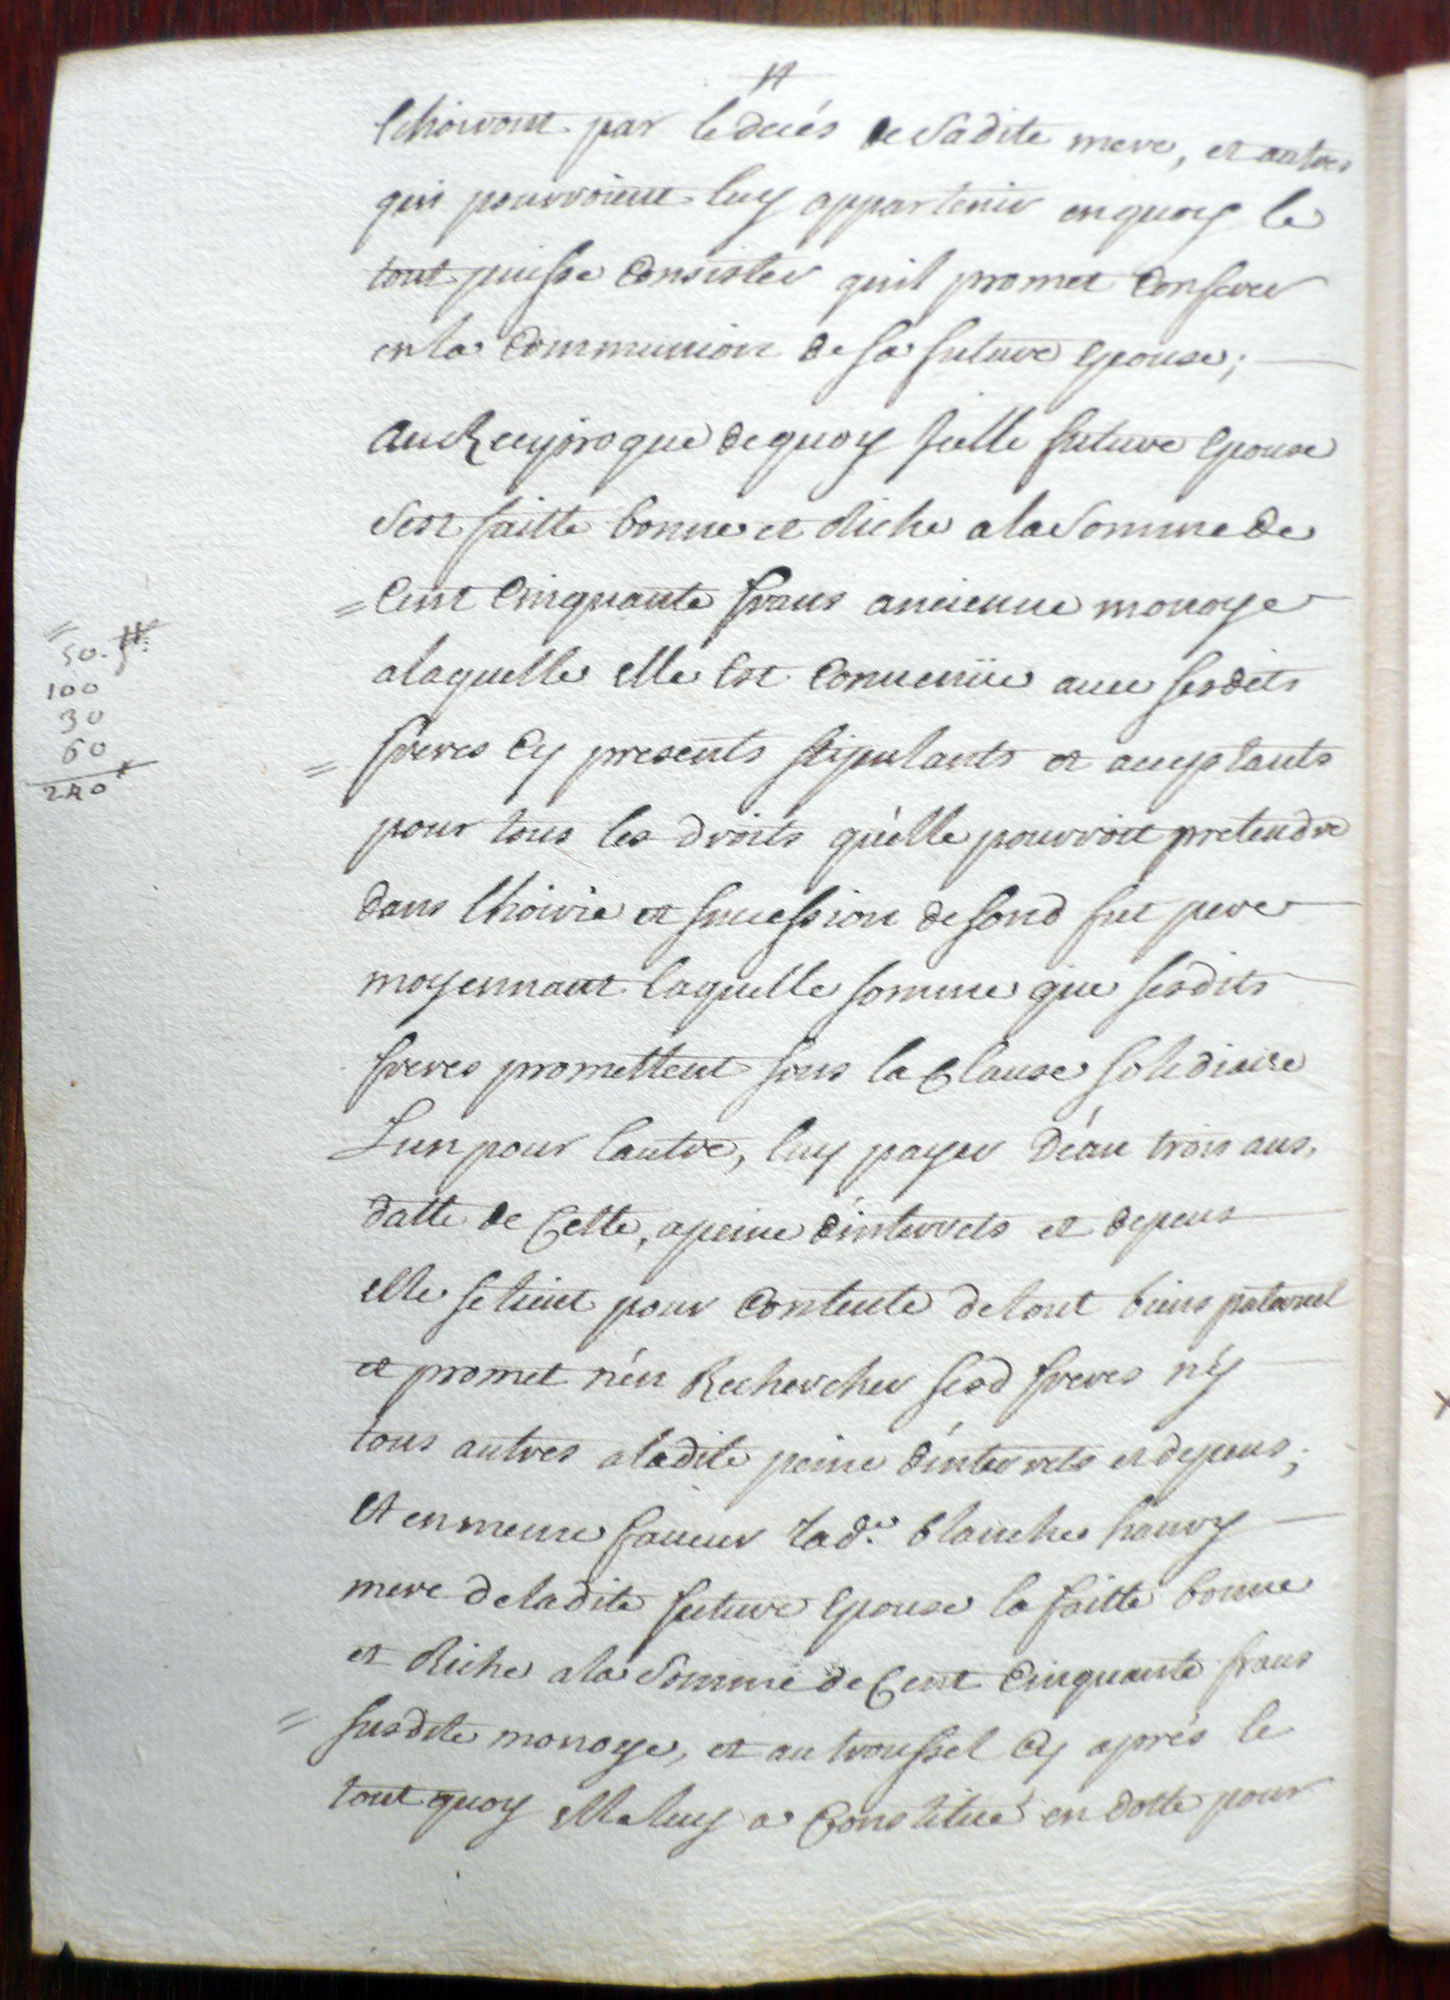 lchoiront par le deces de sadite mere, et autres
qui pourroient luy appartenir en quoy le
tout puisse Consister quil promet Conferer
en la Communion de sa future Epouse;
Au Reciproque de quoy Icelle future Epouse
sest faitte bonne et Riche a la somme de
= Cent Cinquante frans ancienne monoye
a laquelle elle Est Convenüe avec sesdits
= freres Cy presents stipulants et acceptants
pour tous les droits quelle pourroit pretendre
dans lhoirie et succession de sond fut pere
moyennant laquelle somme que sesdits
freres promettent sous la Clause solidiaire
Lun pour lautre, luy payer D'éan trois ans,
datte de Cette, a peine d'interrets et depens
elle se tient pour Contente de tout biens paternel
et promet n'én Rechercher sesd freres n'y
tous autres a ladite peine d'interrets et depens;
Et en meme faveur lad.e blanche haury
mere de ladite future Epouse la faitte bonne
et Riche a la somme de Cent Cinquante frans
= susdite monoye, et au troussel Cy aprés le
tout quoy elle luy a Constitué en dotte pour
=
50.
100
30
60
240